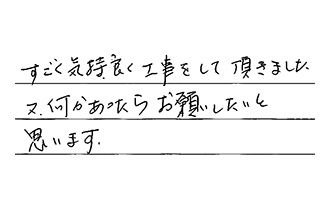 すごく気持良く工事をして頂きました
又、何かあったらお願いしたいと
思います.